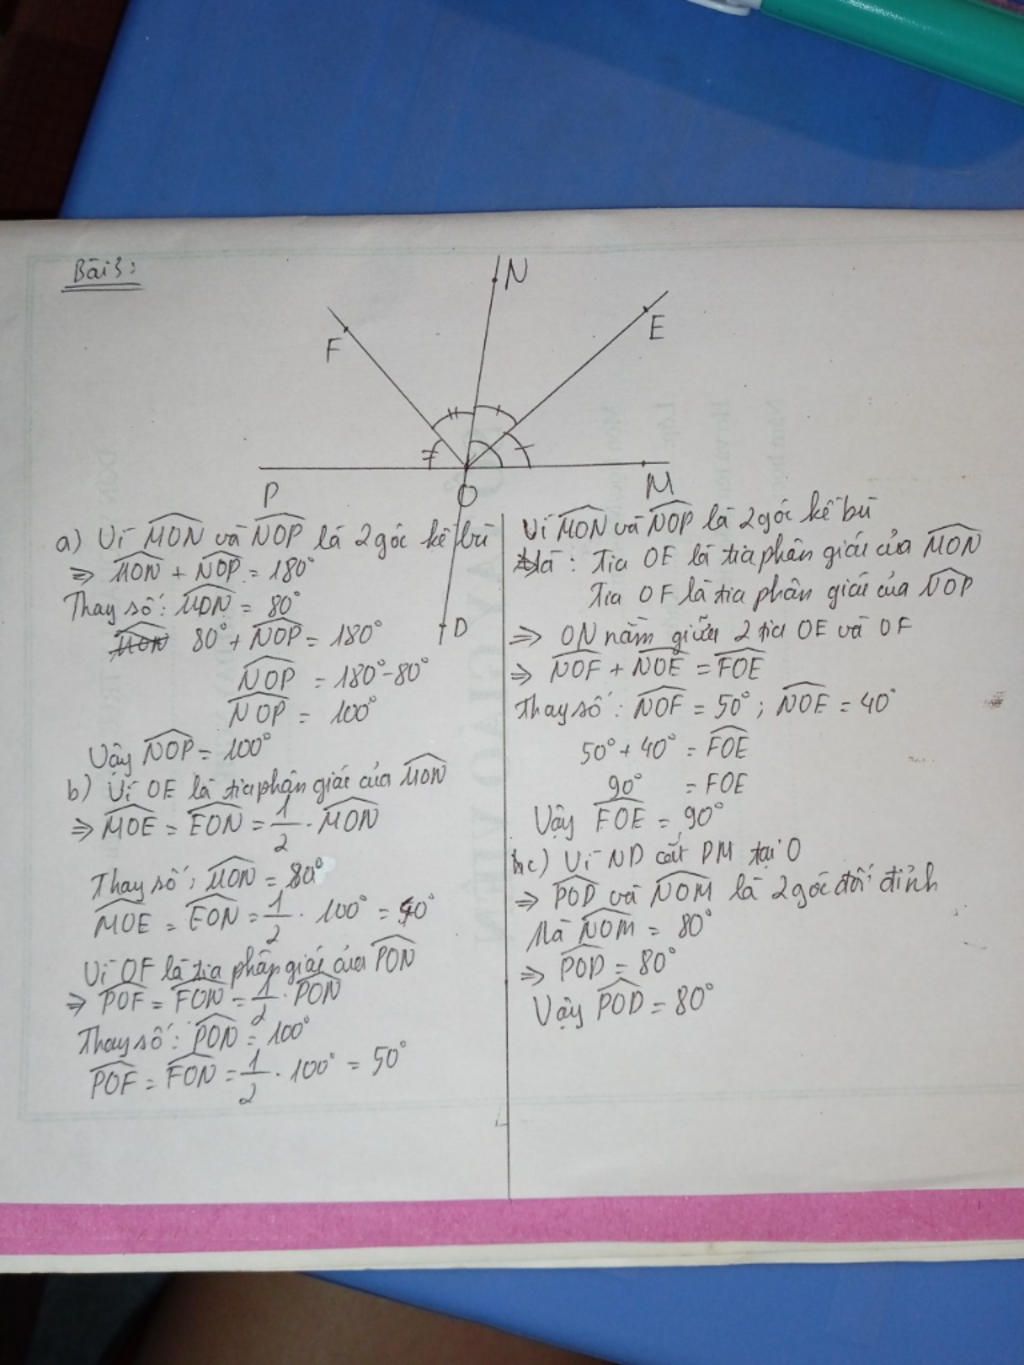 Bài 3:
N
F
E
P
O
M
D
a) Vì MON và NOP là 2 góc kề bù
=> MON + NOP = 180°
Thay số: MON = 80°
80° + NOP = 180°
NOP = 180° - 80°
NOP = 100°
Vậy NOP = 100°
b) Vì OE là tia phân giác của MON
=> MOE = EON = 1/2 . MON
Thay số: MON = 80°
MOE = EON = 1/2 . 100° = 40°
Vì OF là tia phân giác của PON
=> POF = FON = 1/2 . PON
Thay số: PON = 100°
POF = FON = 1/2 . 100° = 50°
Vì MON và NOP là 2 góc kề bù
Mà: Tia OE là tia phân giác của MON
Tia OF là tia phân giác của NOP
=> ON nằm giữa 2 tia OE và OF
=> NOF + NOE = FOE
Thay số: NOF = 50°; NOE = 40°
50° + 40° = FOE
90° = FOE
Vậy FOE = 90°
c) Vì ND cắt PM tại O
=> POD và NOM là 2 góc đối đỉnh
Mà NOM = 80°
=> POD = 80°
Vậy POD = 80°